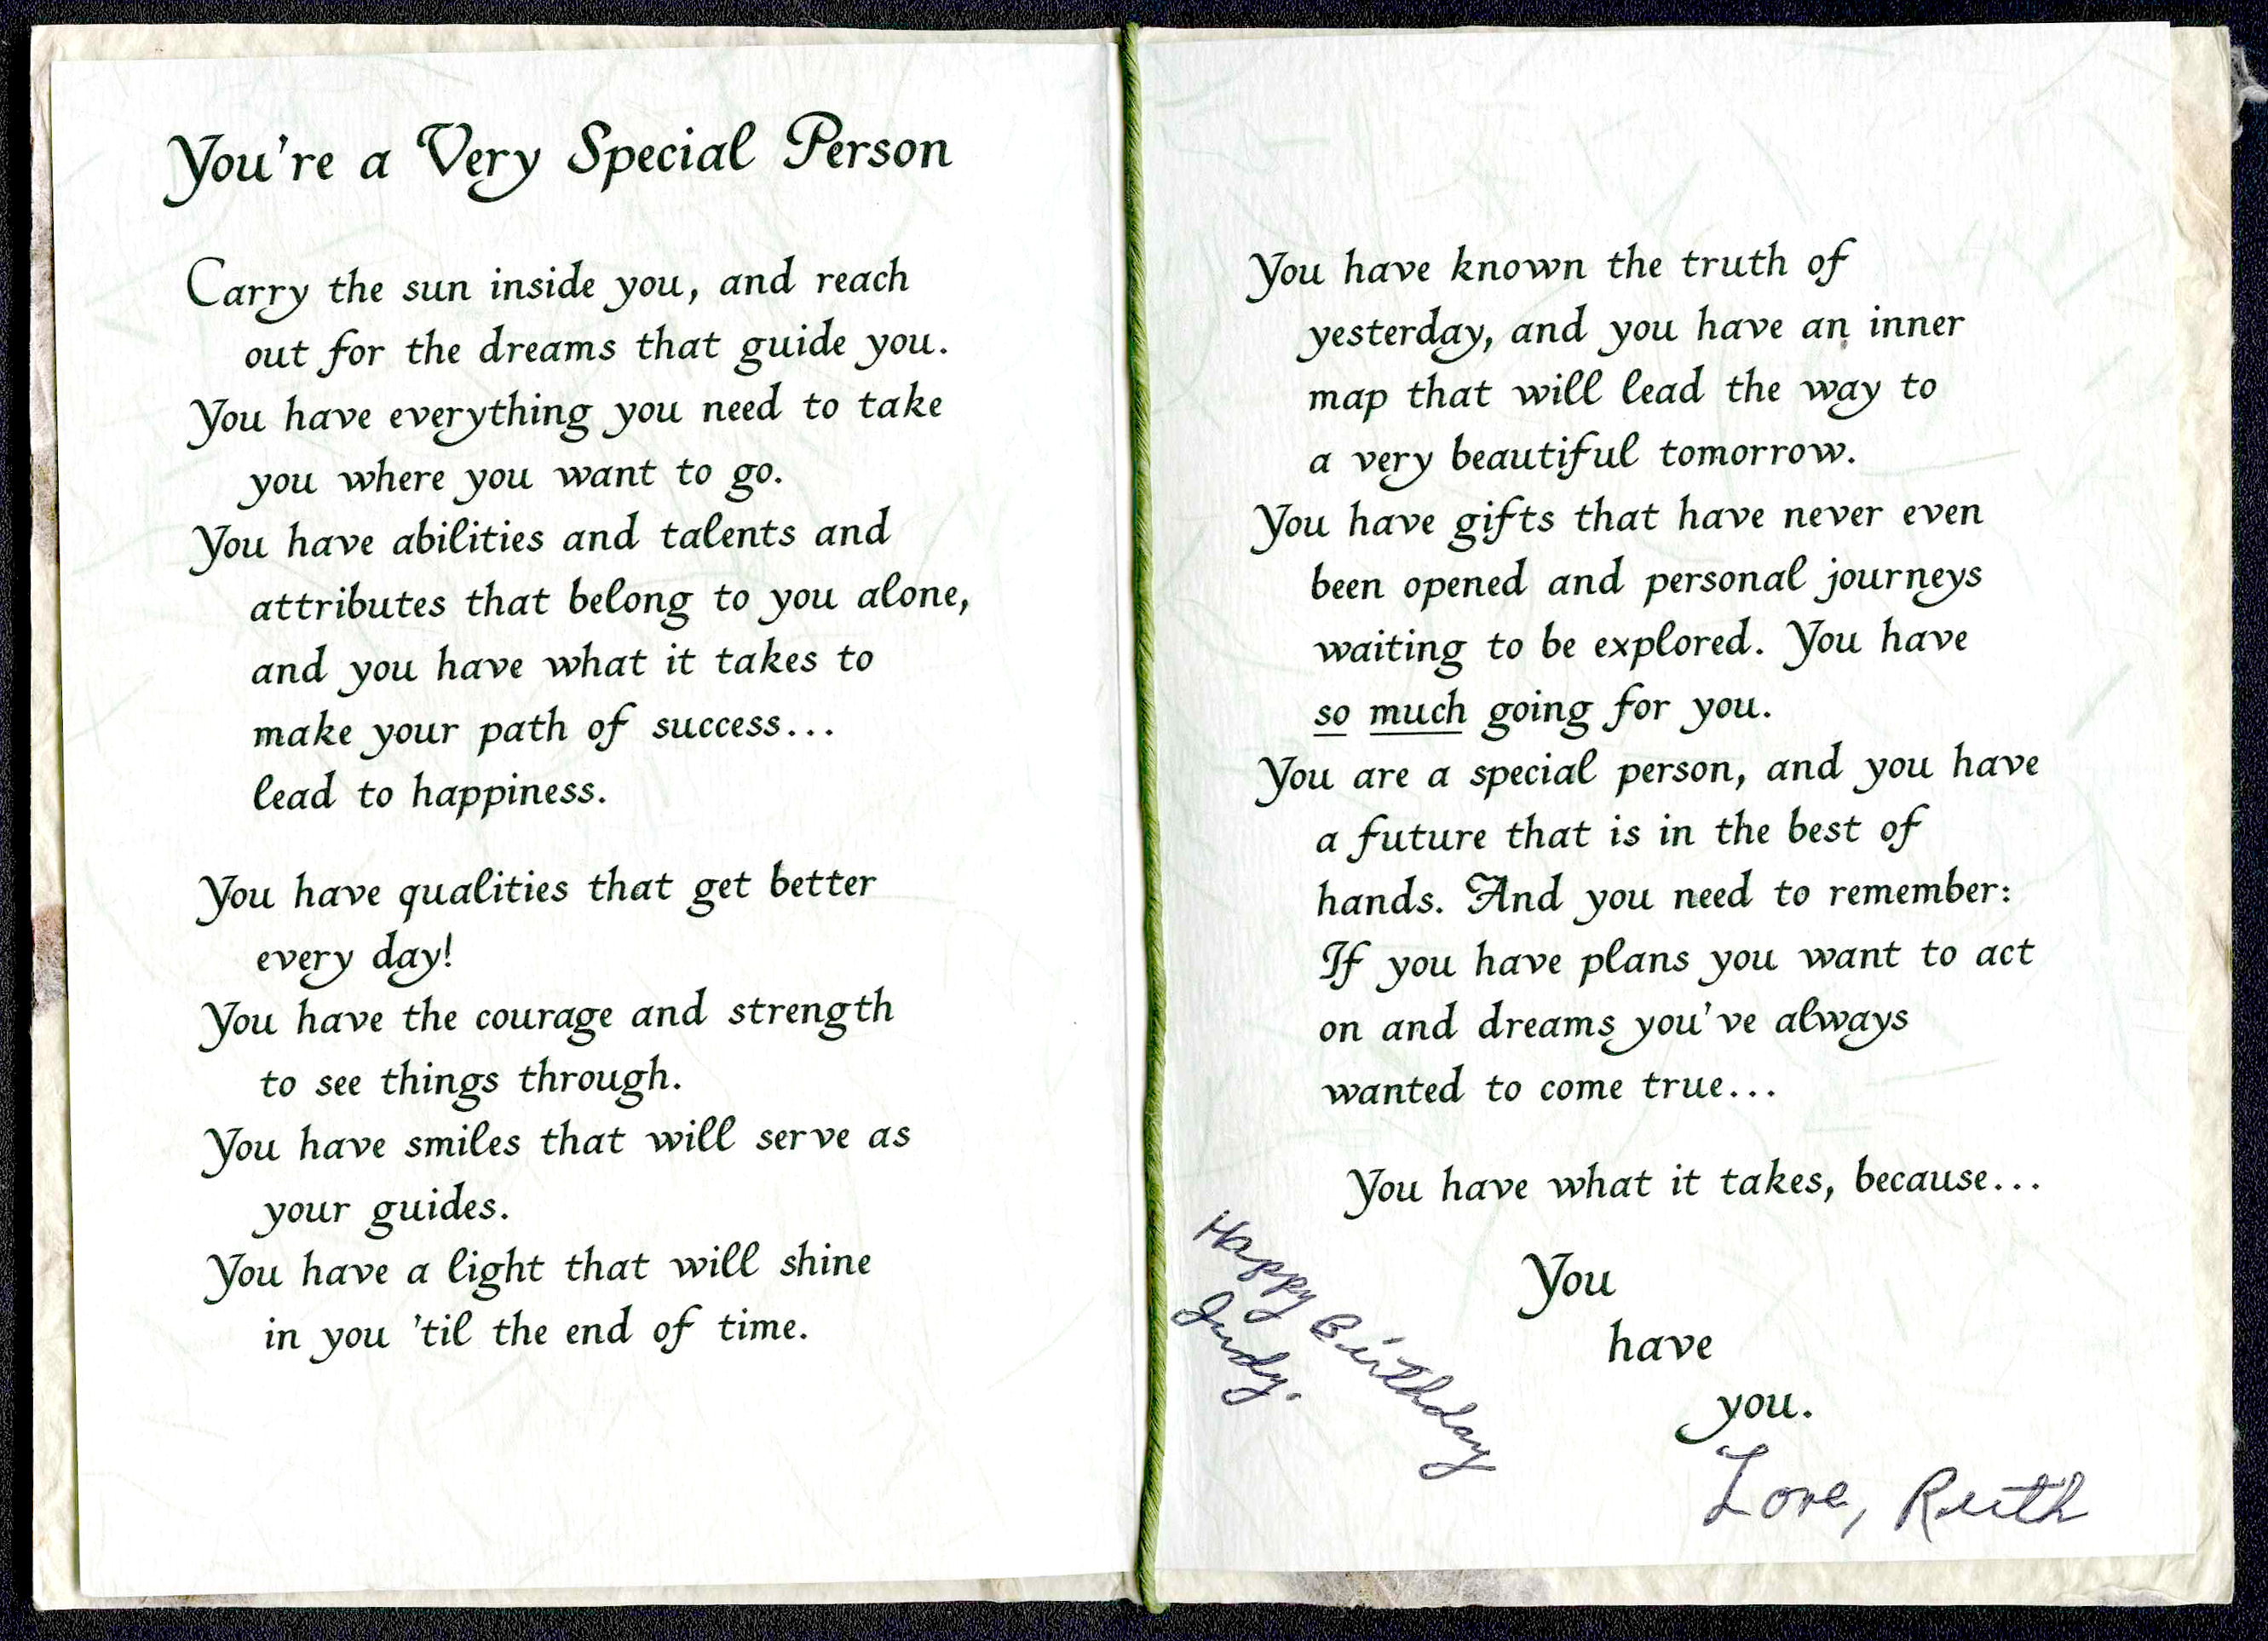 You're a Very Special Person
Carry the sun inside you, and reach
out for the dreams that guide you.
You have everything you need to take
you where you want to go.
You have abilities and talents and
attributes that belong to you alone,
and you have what it takes to
make your path of success...
lead to happiness.
You have qualities that get better
every day!
You have the courage and strength
to see things through.
You have smiles that will serve as
your guides.
You have a light that will shine
in you 'til the end of time.
You have known the truth of
yesterday, and you have an inner
map that will lead the way to
a very beautiful tomorrow.
You have gifts that have never even
been opened and personal journeys
waiting to be explored. You have
so much going for you.
You are a special person, and you have
a future that is in the best of
hands. And you need to remember:
If you have plans you want to act
on and dreams you've always
wanted to come true...
You have what it takes, because...
You
have
you.
Happy Birthday
Judy.
Love, Ruth